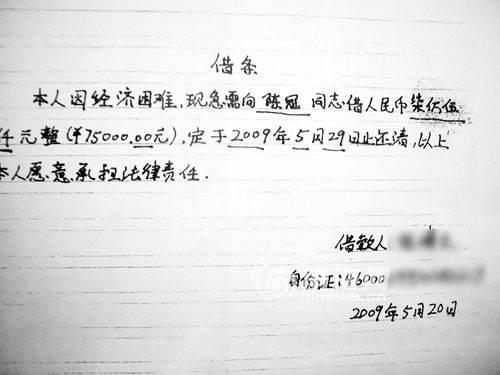 借条
本人因经济困难,现急需向 陈冠 同志借人民币柒伍
仟元整(¥75000.00元),定于2009年5月29日止还清,以上
本人愿意承担法律责任.
借款人
身份证:46000
2009年5月20日